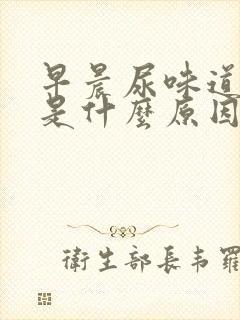 早晨尿味道
是什麼原因
衛生部長韦羅